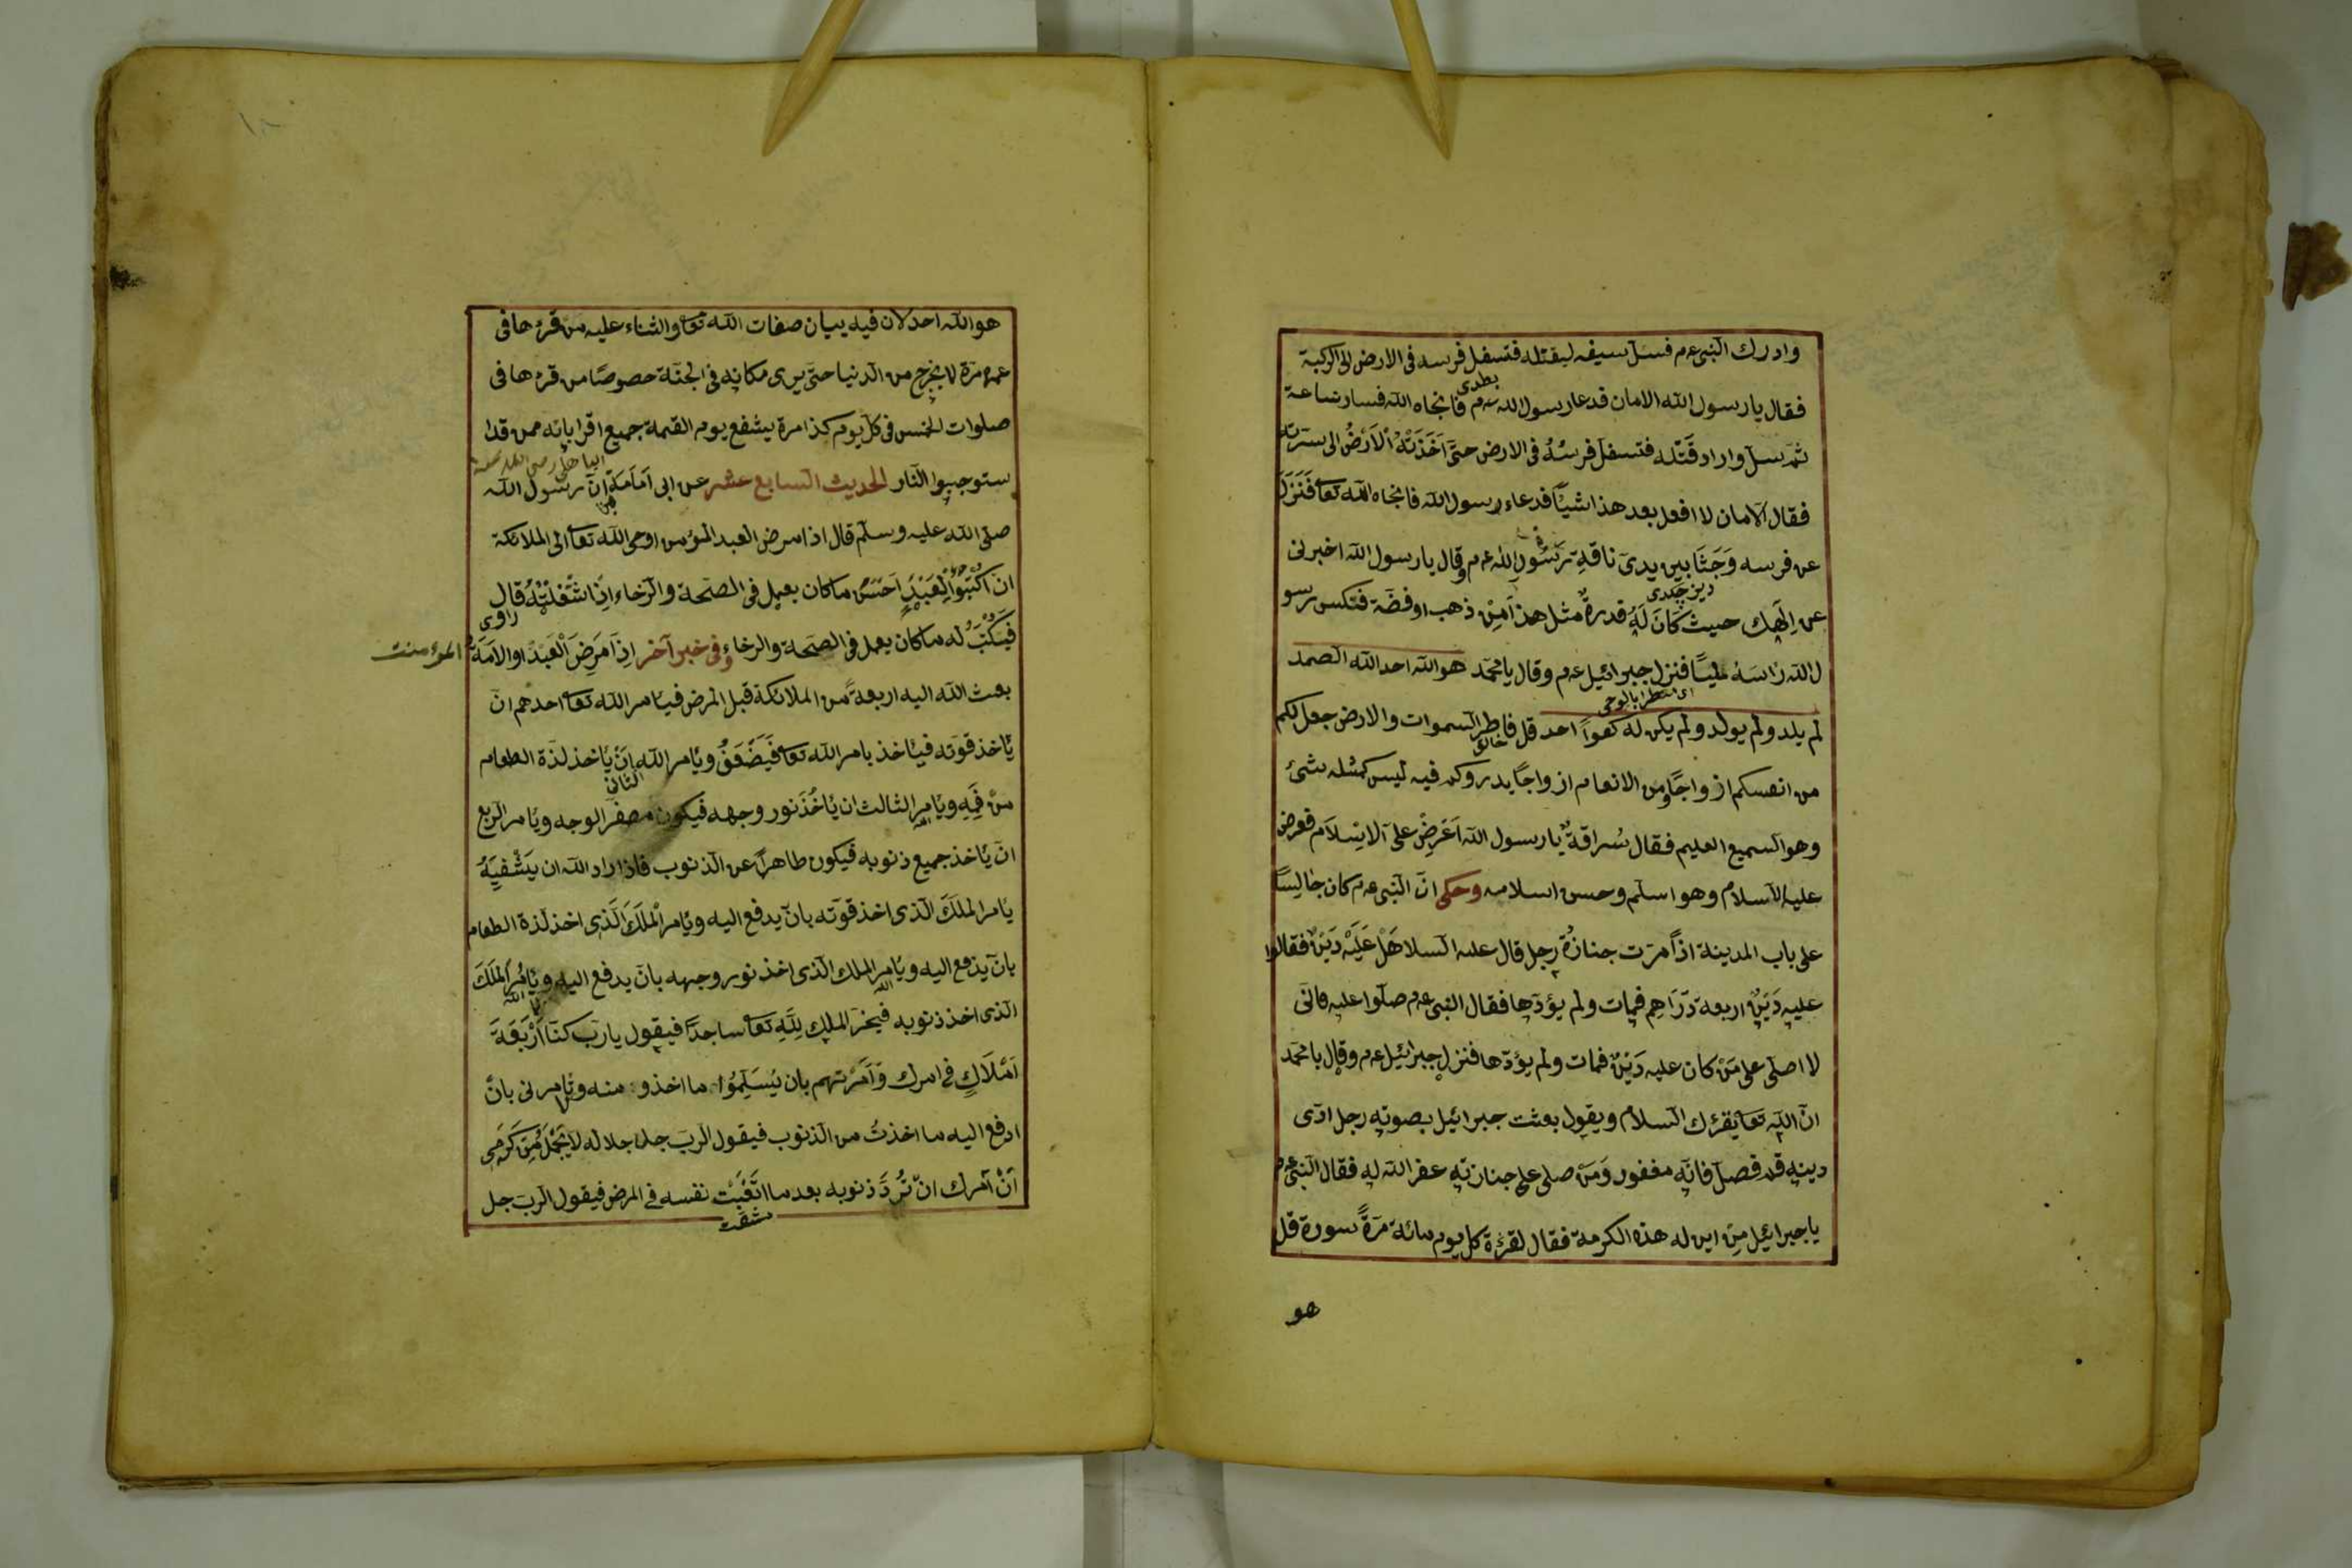 وادرك النبى عم فسل سيفه ليقتله فتسفل فرسه فى الارض الى الركبة
فقال يا رسول الله الامان فدعا رسول الله عم فانجاه الله فسار ساعة
ثم سل واراد قَتْله فتسفل فرسُهُ فى الارض حتى اَخَذَتْهُ الْاَرْضُ الى سرته
فقال الامان لا افعل بعد هذا شيأ فدعاء رسول الله فانجاه الله تعا فَنَزَلَ
عن فرسه وَجَثَا بين يدى ناقةِ رَسُولِ الله عم وقال يا رسول الله اخبرنى
عن اِلٰهِك حيث كَانَ لَهُ قدرةٌ مثل هذا اَمِنْ ذهب او فضة فنكس رسو
ل الله رَاسَهُ مليًّا فنزل جبرائيل عم وقال يا محمد هو الله احد الله الصمد
اى منتظرا بالوحى
لم يلد ولم يولد ولم يكن له كفواً احد قل فاطر السموات والارض جعل لكم
خالق
من انفسكم ازواجًا ومن الانعام ازواجًا يدروكم فيه ليس كمثله شئ
وهو السميع العليم فقال سُراقةُ يا رسول الله اَعْرِضْ على الاسلام فعرض
عليه السلام وهو اسلم وحسن اسلامه وحكى ان النبى عم كان جَالِسًا
على باب المدينة اذاً مرت جنازةُ رجل قال عليه السلا هَلْ عَلَيْهِ دَيْنٌ فقالوا
عليه دَيْنٌ اربعة دَرَاهِم فمات ولم يؤدها فقال النبى عم صلوا عليه فانى
لا اصلى على مَنْ كان عليه دَيْنٌ فمات ولم يؤدها فنزل جبرائيل عم وقال يا محمد
ان الله تعا يقرئك السلام ويقول بعثت جبرائيل بصوته رجل ادى
دينه قم فصل فانه مغفور وَمَنْ صلى على جنازته غفر الله له فقال النبى عم
يا جبرائيل مِنْ اين له هذه الكرمة فقال لقرءة كل يوم مائة مَرَةً سورة قل
هو
هو الله احد لان فيه بيان صفات الله تعا والثناء عليه من قرءها فى
عمره مرة لا يخرج من الدنيا حتى يرى مكانه فى الجنة خصوصًا من قرءها فى
صلوات الخمس فى كل يوم كذا مرة يشفع يوم القيمة جميع اقرابائه ممن قد ا
الباهلى رضى الله عنه
ستوجبوا النار الحديث السابع عشر عن ابى اَمَامَة ان رسول الله
صلى الله عليه وسلم قال اذا مرض العبد المؤمن اوحى الله تعا الى الملائكة
ان اكْتُبُوا لِعَبْدِى اَحْسَنَ ما كان يعمل فى الصحة والرخاء اِذَا شَغَلْتُهُ قال
راوى
فيَكْتُبُ له ما كان يعمل فى الصحة والرخاء وفى خبر آخر اِذَا مَرِضَ الْعَبْدُ او الاَمَةُ
المؤمنت
بعث الله اليه اربعةً من الملائكة قبل المرض فيأمر الله تعا احدهم ان
يأخذ قوته فيأخذ بامر الله تعا فَيَضْعَفُ ويأمر الله اَنْ يأخذ لذة الطعام
الثانى
مِنْ فَمِهِ ويأمر الثالث ان يأخُذَ نور وجهه فيكون مصفر الوجه ويأمر الربع
ان يأخذ جميع ذنوبه فيكون طاهراً عن الذنوب فاذا اراد الله ان يَشْفِيَهُ
يأمر الملَكَ الذى اخذ قوته بان يدفع اليه ويأمر الْملَكَ الَذى اخذ لذة الطعام
بان يدفع اليه ويأمر الملك الذى اخذ نور وجهه بان يدفع اليه ويأمُرُ الملَكَ
الله
الذى اخذ ذنوبه فيخر الملك لِلَّهِ تعا ساجداً فيقول يا رب كنا اَرْبَعَةَ
اَمْلَاكٍ فى امرك وَاَمَرْتهم بان يُسَلِمُوا ما اخذو منه وتأمرنى بان
ادفع اليه ما اخذتُ من الذنوب فيقول الرب جل جلاله لا يَجْمُلُ مِنْ كَرَمِى
اَنْ آمرك ان تُرَدَّ ذنوبه بعد ما اتْعَبْت نفسه فى المرض فيقول الرب جل
مشقت